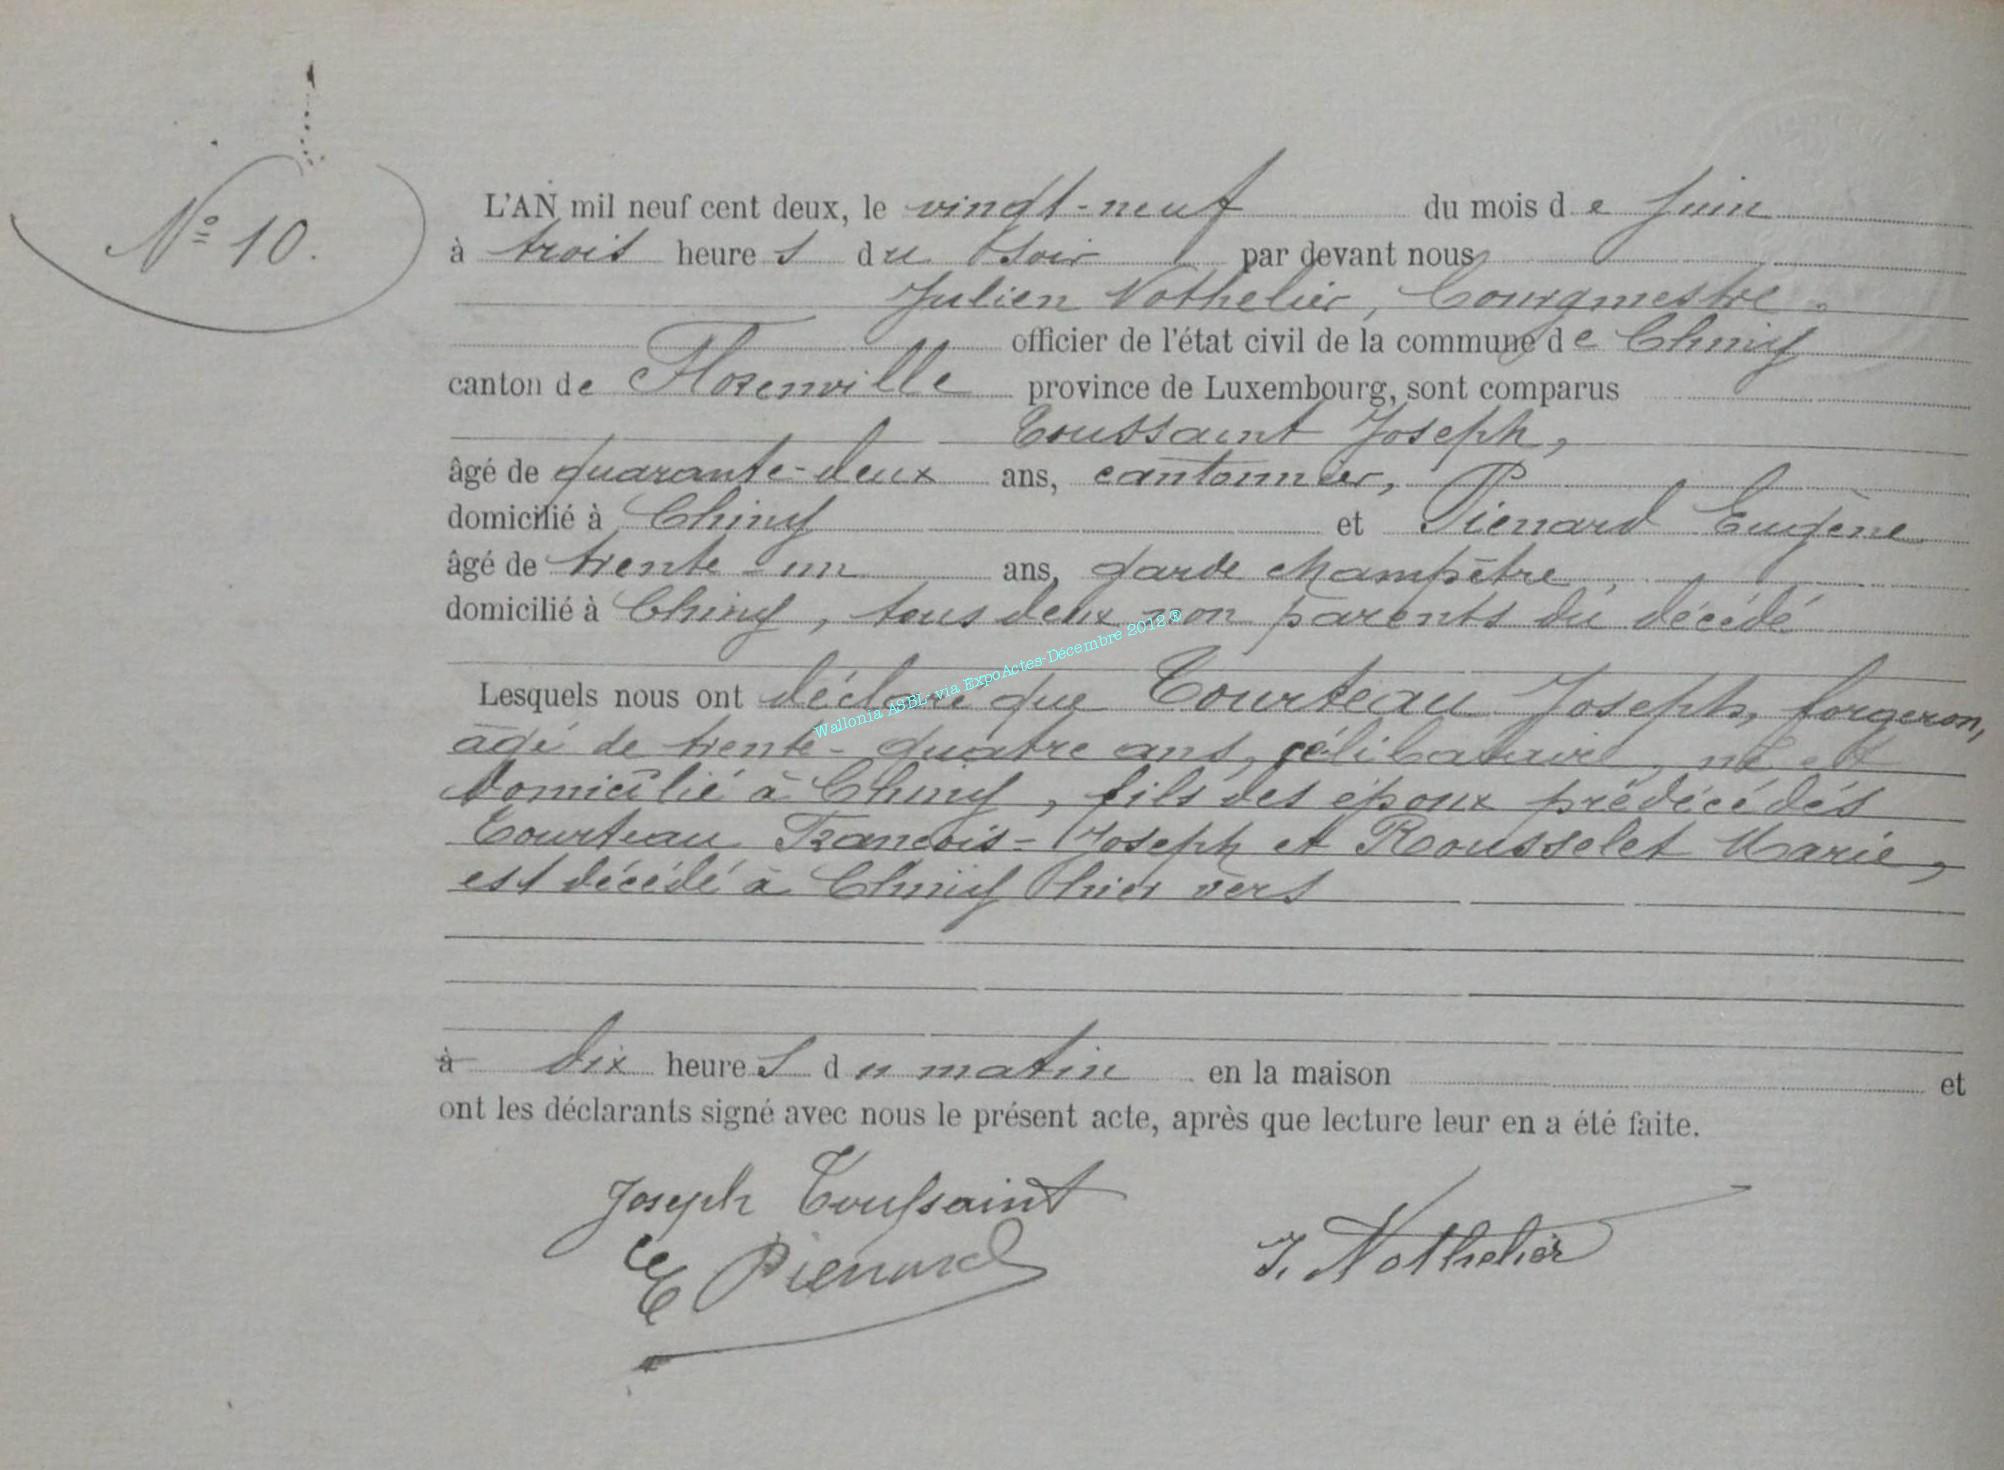 N° 10.
L'AN mil neuf cent deux, le vingt-neuf du mois de Juin
à trois heures du soir par devant nous
Julien Nothelier, bourgmestre
officier de l'état civil de la commune de Chiny
canton de Florenville province de Luxembourg, sont comparus
Toussaint Joseph,
âgé de quarante-deux ans, cantonnier,
domicilié à Chiny et Pienard Eugène
âgé de trente-un ans, garde champêtre,
domicilié à Chiny, tous deux non parents du décédé
Lesquels nous ont déclaré que Tourteau Joseph, forgeron,
âgé de trente-quatre ans, célibataire, né et
domicilié à Chiny, fils des époux prédécédés
Tourteau François-Joseph et Rousselet Marie,
est décédé à Chiny hier vers
à dix heures du matin en la maison et
ont les déclarants signé avec nous le présent acte, après que lecture leur en a été faite.
Joseph Toussaint
E Pienard
J. Nothelier
Wallonia ASBL via ExpoActes-Décembre 2012 ®